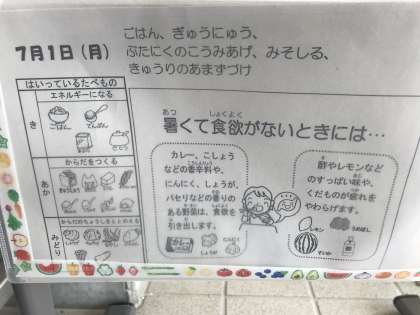 7月1日(月)
ごはん、ぎゅうにゅう、
ぶたにくのこうみあげ、みそしる、
きゅうりのあまずづけ
はいっているたべもの
エネルギーになる
き
ごはん
でんぷん
からだをつくる
あか
からだのちょうしをととのえる
みどり
暑くて食欲がないときには…
あつ
しょくよく
カレー、こしょう
などの香辛料や、
にんにく、しょうが、
パセリなどの香りの
ある野菜は、食欲を
引き出します。
カレー
しょうが
酢やレモンなど
のすっぱい味や、
くだものが疲れを
やわらげます。
レモン
うめぼし
すいか